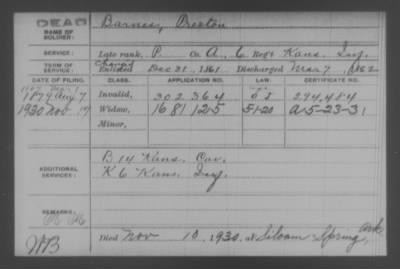 DEAD
NAME OF SOLDIER: Barnes, Preston
SERVICE: Late rank, P. Co. A, 6 Reg't Kans. Inf.
TERM OF SERVICE: Enlisted Dec 31, 1861. Discharged Mar 7, 1862
DATE OF FILING. CLASS. APPLICATION NO. LAW. CERTIFICATE NO.
1879 Aug 7 Invalid, 302364 294,484
1930 Nov 19 Widow, 1681125 5-1-20 A-5-23-31
Minor,
ADDITIONAL SERVICES: B 14 Kans. Cav.
K 6 Kans. Inf.
REMARKS:
WB Died Nov 10, 1930, at Siloam Spring, Ark